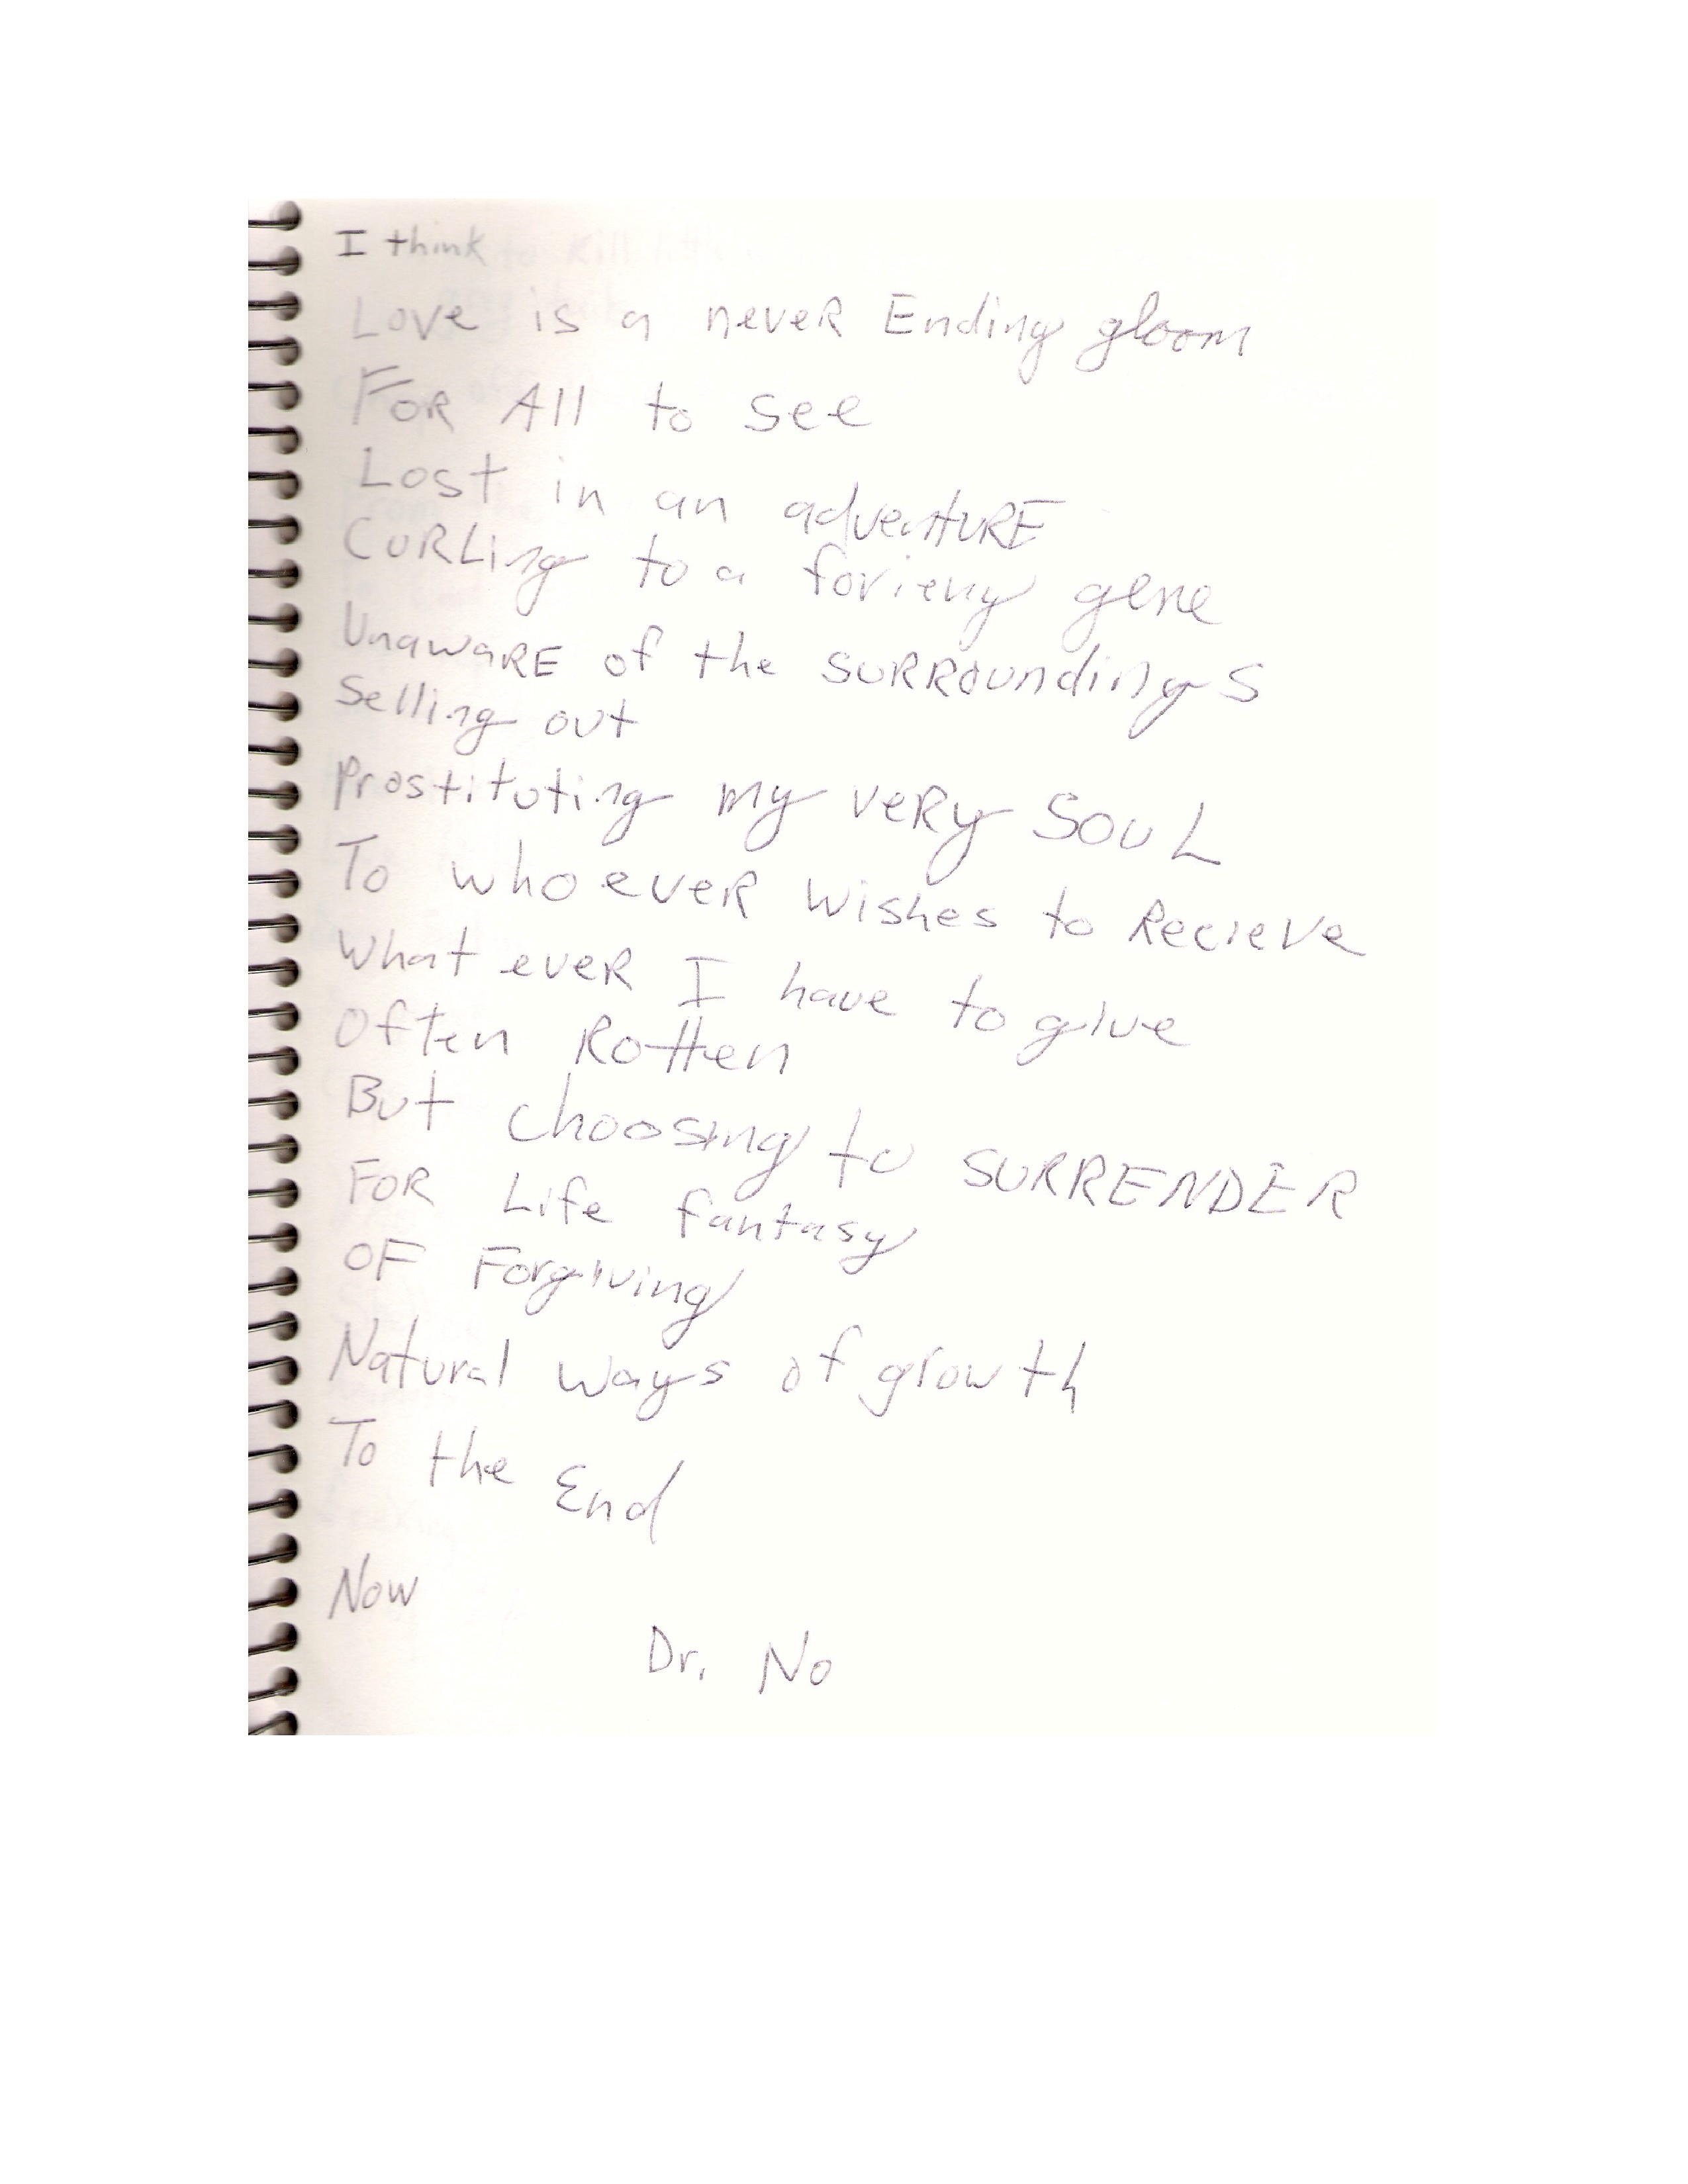 I think
Love is a neveR Ending gloom
FoR All to see
Lost in an adventURE
CuRLing to a forieny gene
UnawaRE of the SURRoundings
Selling out
Prostituting my veRy SouL
To who eveR Wishes to Recieve
What eveR I have to give
Often Rotten
But choosing to SURRENDER
FOR Life fantasy
OF Forgiving
Natural ways of growth
To the End
Now
Dr. No